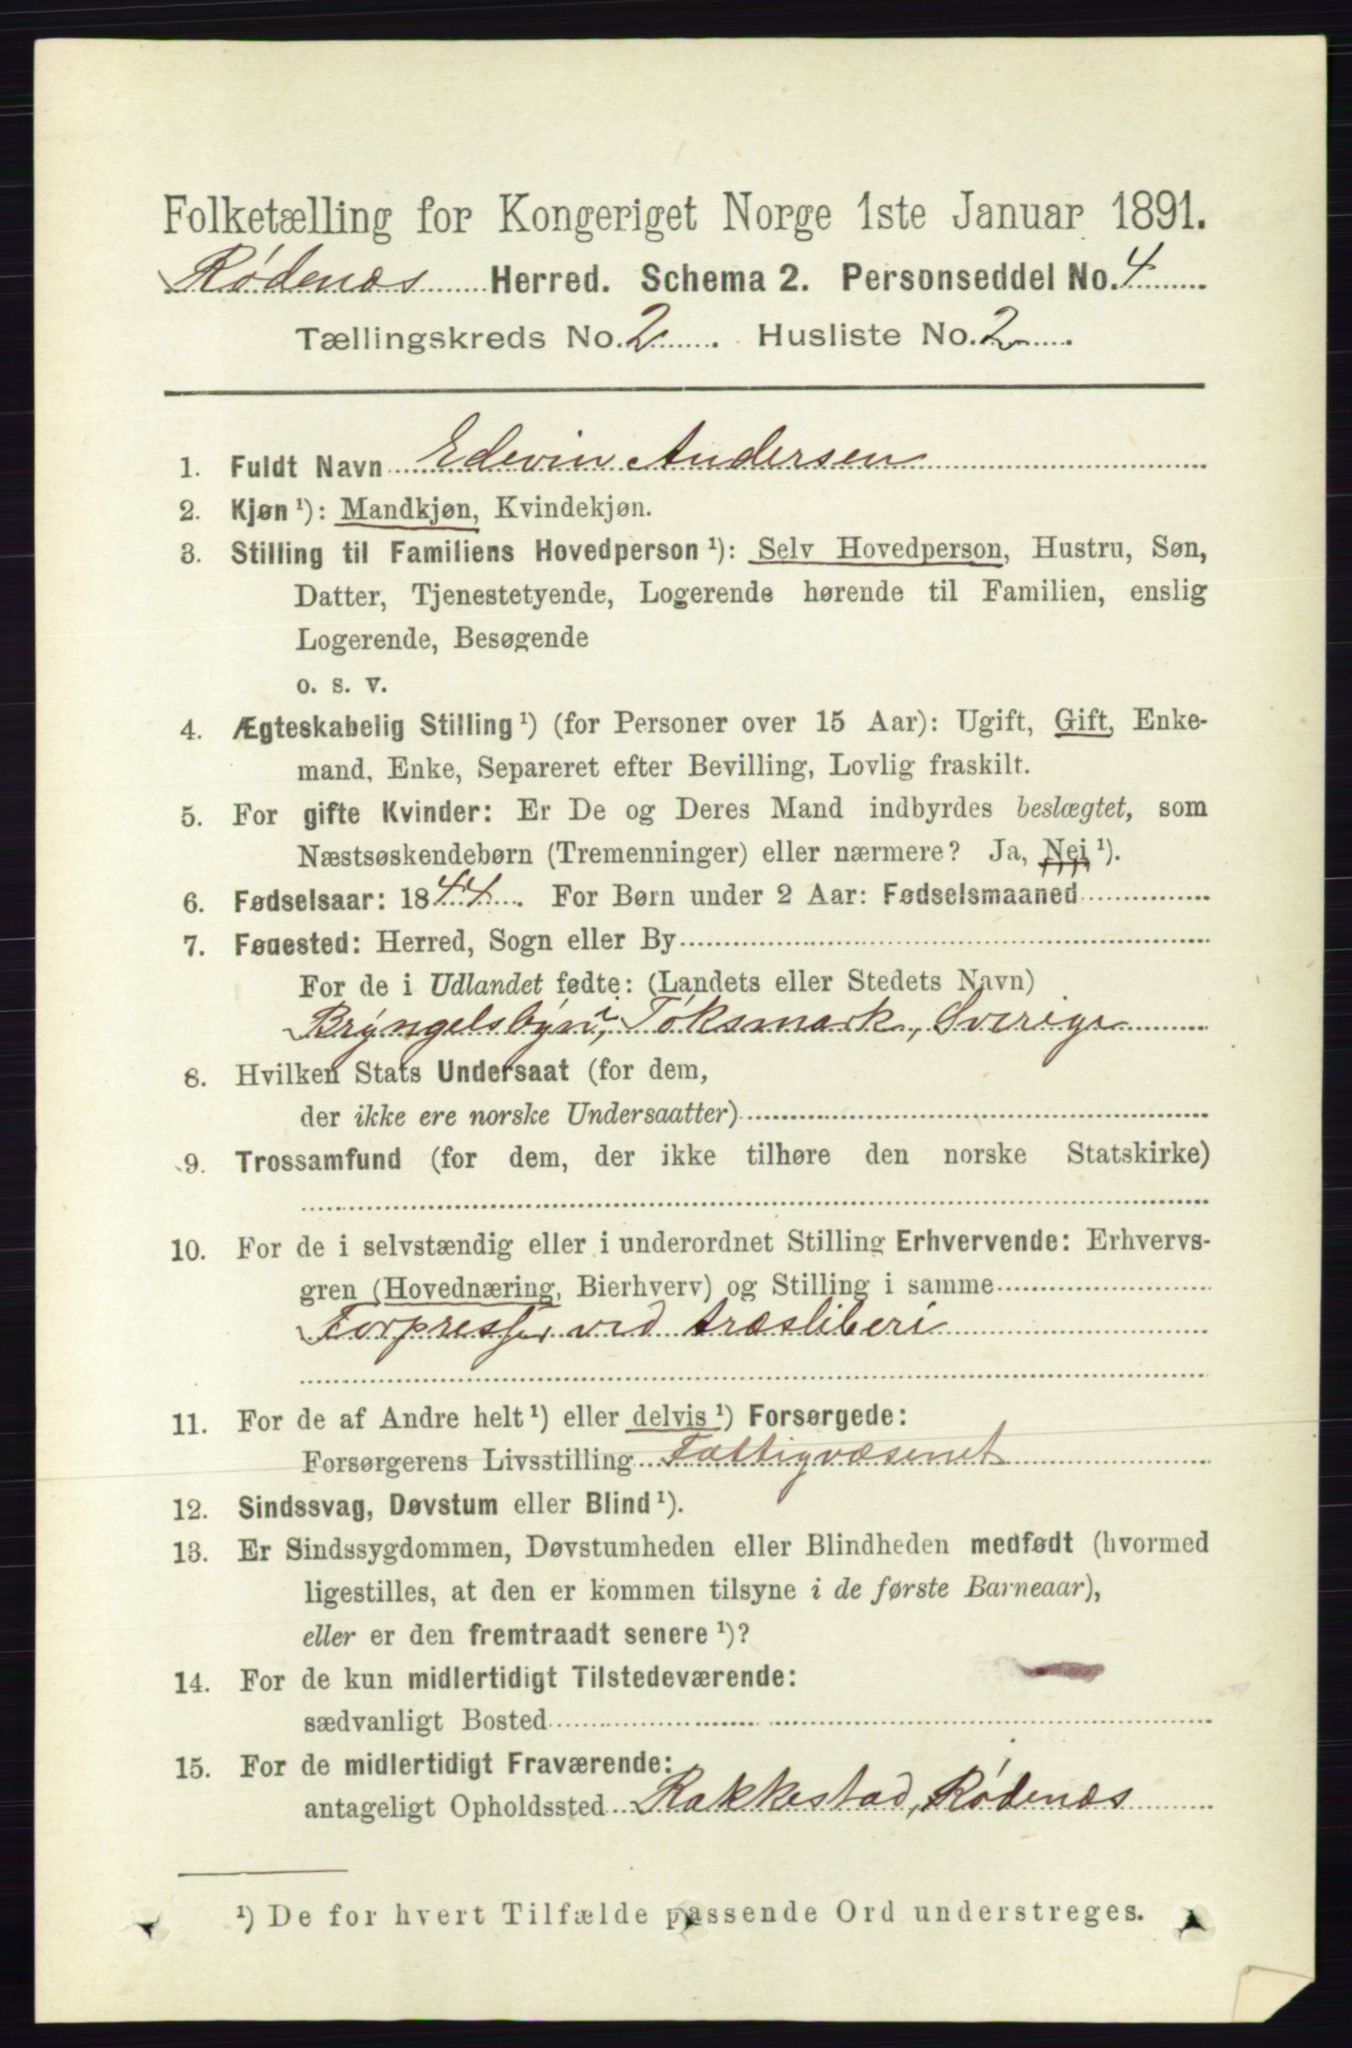 Folketælling for Kongeriget Norge 1ste Januar 1891.
Rødenæs Herred. Schema 2. Personseddel No. 4
Tællingskreds No. 2. Husliste No. 2.
1. Fuldt Navn Edevin Andersen
2. Kjøn ¹): Mandkjøn, Kvindekjøn.
3. Stilling til Familiens Hovedperson ¹): Selv Hovedperson, Hustru, Søn,
Datter, Tjenestetyende, Logerende hørende til Familien, enslig
Logerende, Besøgende
o. s. v.
4. Ægteskabelig Stilling ¹) (for Personer over 15 Aar): Ugift, Gift, Enke-
mand, Enke, Separeret efter Bevilling, Lovlig fraskilt.
5. For gifte Kvinder: Er De og Deres Mand indbyrdes beslægtet, som
Næstsøskendebørn (Tremenninger) eller nærmere? Ja, Nei ¹).
6. Fødselsaar: 1844. For Børn under 2 Aar: Fødselsmaaned
7. Føuested: Herred, Sogn eller By
For de i Udlandet fødte: (Landets eller Stedets Navn)
Bryngelsbyn, i Töksmark, Sverige
8. Hvilken Stats Undersaat (for dem,
der ikke ere norske Undersaatter)
9. Trossamfund (for dem, der ikke tilhøre den norske Statskirke)
10. For de i selvstændig eller i underordnet Stilling Erhvervende: Erhvervs-
gren (Hovednæring, Bierhverv) og Stilling i samme
Torpresser ved træsliberi
11. For de af Andre helt ¹) eller delvis ¹) Forsørgede:
Forsørgerens Livsstilling Fattigvæsenet
12. Sindssvag, Døvstum eller Blind ¹).
13. Er Sindssygdommen, Døvstumheden eller Blindheden medfødt (hvormed
ligestilles, at den er kommen tilsyne i de første Barneaar),
eller er den fremtraadt senere ¹)?
14. For de kun midlertidigt Tilstedeværende:
sædvanligt Bosted
15. For de midlertidigt Fraværende:
antageligt Opholdssted Rakkestad, Rødenæs
¹) De for hvert Tilfælde passende Ord understreges.